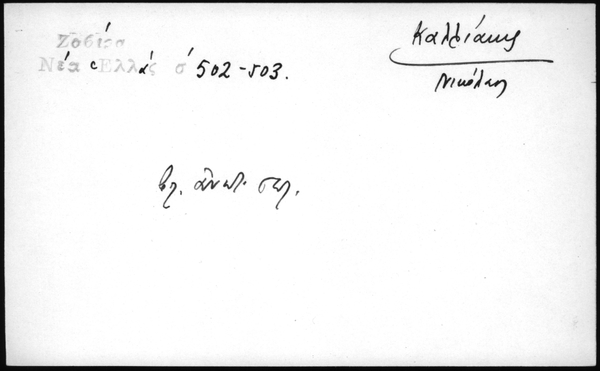 Ζαβίρα
Νέα Ἑλλάς σ 502-503.
Καλλιάκης
Νικόλαος
βλ. ἀνωτ. σελ.